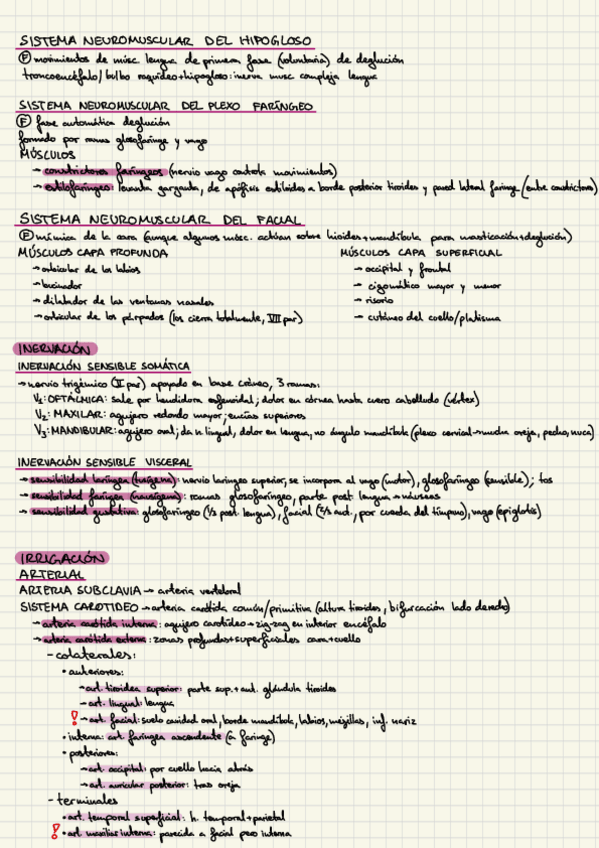 SISTEMA NEUROMUSCULAR DEL HIPOGLOSO
Ⓕ movimientos de músc. lengua de primera fase (voluntaria) de deglución
troncoencéfalo/bulbo raquídeo→hipogloso: inerva musc compleja lengua
SISTEMA NEUROMUSCULAR DEL PLEXO FARÍNGEO
Ⓕ fase automática deglución
formado por ramas glosofaringe y vago
MÚSCULOS
→ constrictores faríngeos (nervio vago controla movimientos)
→ estilofaríngeo: levanta garganta, de apófisis estiloides a borde posterior tiroides y pared lateral faringe (entre constrictores)
SISTEMA NEUROMUSCULAR DEL FACIAL
Ⓕ mímica de la cara (aunque algunos músc. actúan sobre hioides+mandíbula para masticación+deglución)
MÚSCULOS CAPA PROFUNDA
→ orbicular de los labios
→ bucinador
→ dilatador de las ventanas nasales
→ orbicular de los párpados (los cierra totalmente, VII par)
MÚSCULOS CAPA SUPERFICIAL
→ occipital y frontal
→ cigomático mayor y menor
→ risorio
→ cutáneo del cuello/platisma
INERVACIÓN
INERVACIÓN SENSIBLE SOMÁTICA
→ nervio trigémico (V par) apoyado en base cráneo, 3 ramas:
V₁: OFTÁLMICA: sale por hendidura esfenoidal; dolor en córnea hasta cuero cabelludo (vértex)
V₂: MAXILAR: agujero redondo mayor; encías superiores
V₃: MANDIBULAR: agujero oval; da n. lingual, dolor en lengua, no ángulo mandíbula (plexo cervical→mucha oreja, pecho, nuca)
INERVACIÓN SENSIBLE VISCERAL
→ sensibilidad laríngea (tusígena): nervio laríngeo superior, se incorpora al vago (motor), glosofaríngeo (sensible); tos
→ sensibilidad faríngea (nauseígena): ramas glosofaríngeo, parte post. lengua → náuseas
→ sensibilidad gustativa: glosofaríngeo (1/3 post. lengua), facial (2/3 ant., por cuerda del tímpano), vago (epiglotis)
IRRIGACIÓN
ARTERIAL
ARTERIA SUBCLAVIA → arteria vertebral
SISTEMA CAROTIDEO → arteria carótida común/primitiva (altura tiroides, bifurcación lado derecho)
→ arteria carótida interna: agujero carotídeo→zig-zag en interior encéfalo
→ arteria carótida externa: zonas profundas+superficiales cara+cuello
- colaterales:
• anteriores:
→ art. tiroidea superior: parte sup.+ant. glándula tiroides
→ art. lingual: lengua
! → art. facial: suelo cavidad oral, borde mandíbula, labios, mejillas, inf. nariz
• interna: art. faríngea ascendente (a faringe)
• posteriores:
→ art. occipital: por cuello hacia atrás
→ art. auricular posterior: tras oreja
- terminales
• art. temporal superficial: h. temporal+parietal
! • art. maxilar interna: parecida a facial pero interna